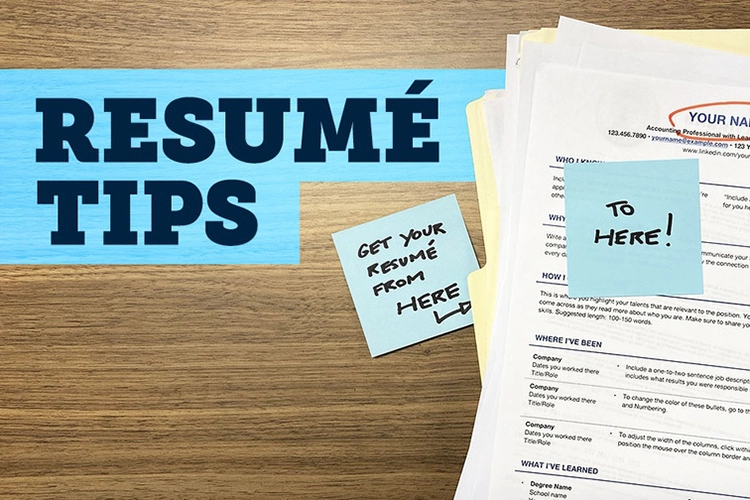 RESUMÉ
TIPS
GET YOUR
RESUMÉ
FROM
HERE
TO
HERE!
YOUR NA
Accounting Professional with Lea
123.456.7890 • yourname@example.com • 123 Y
www.linkedin.com/your
WHO I KNO
"Include
for you he
WHY
Write a
compa
every da
ommunicate your
y the connection
HOW I
This is where you highlight your talents that are relevant to the position. Yo
come across as they read more about who you are. Make sure to share yo
skills. Suggested length: 100-150 words.
WHERE I'VE BEEN
Company
Dates you worked there
Title/Role
• Include a one-to-two sentence job descript
includes what results you were responsible
Company
Dates you worked there
Title/Role
• To change the color of these bullets, go to th
and Numbering.
Company
Dates you worked there
Title/Role
• To adjust the width of the columns, click within
position the mouse over the column border and
WHAT I'VE LEARNED
• Degree Name
School name